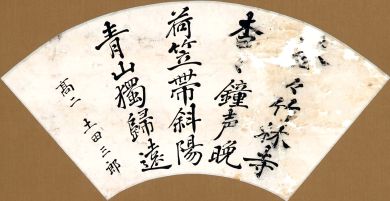 々竹林寺
杳々鐘声晩
荷笠帯斜陽
青山獨歸遠
高二 土田三郎